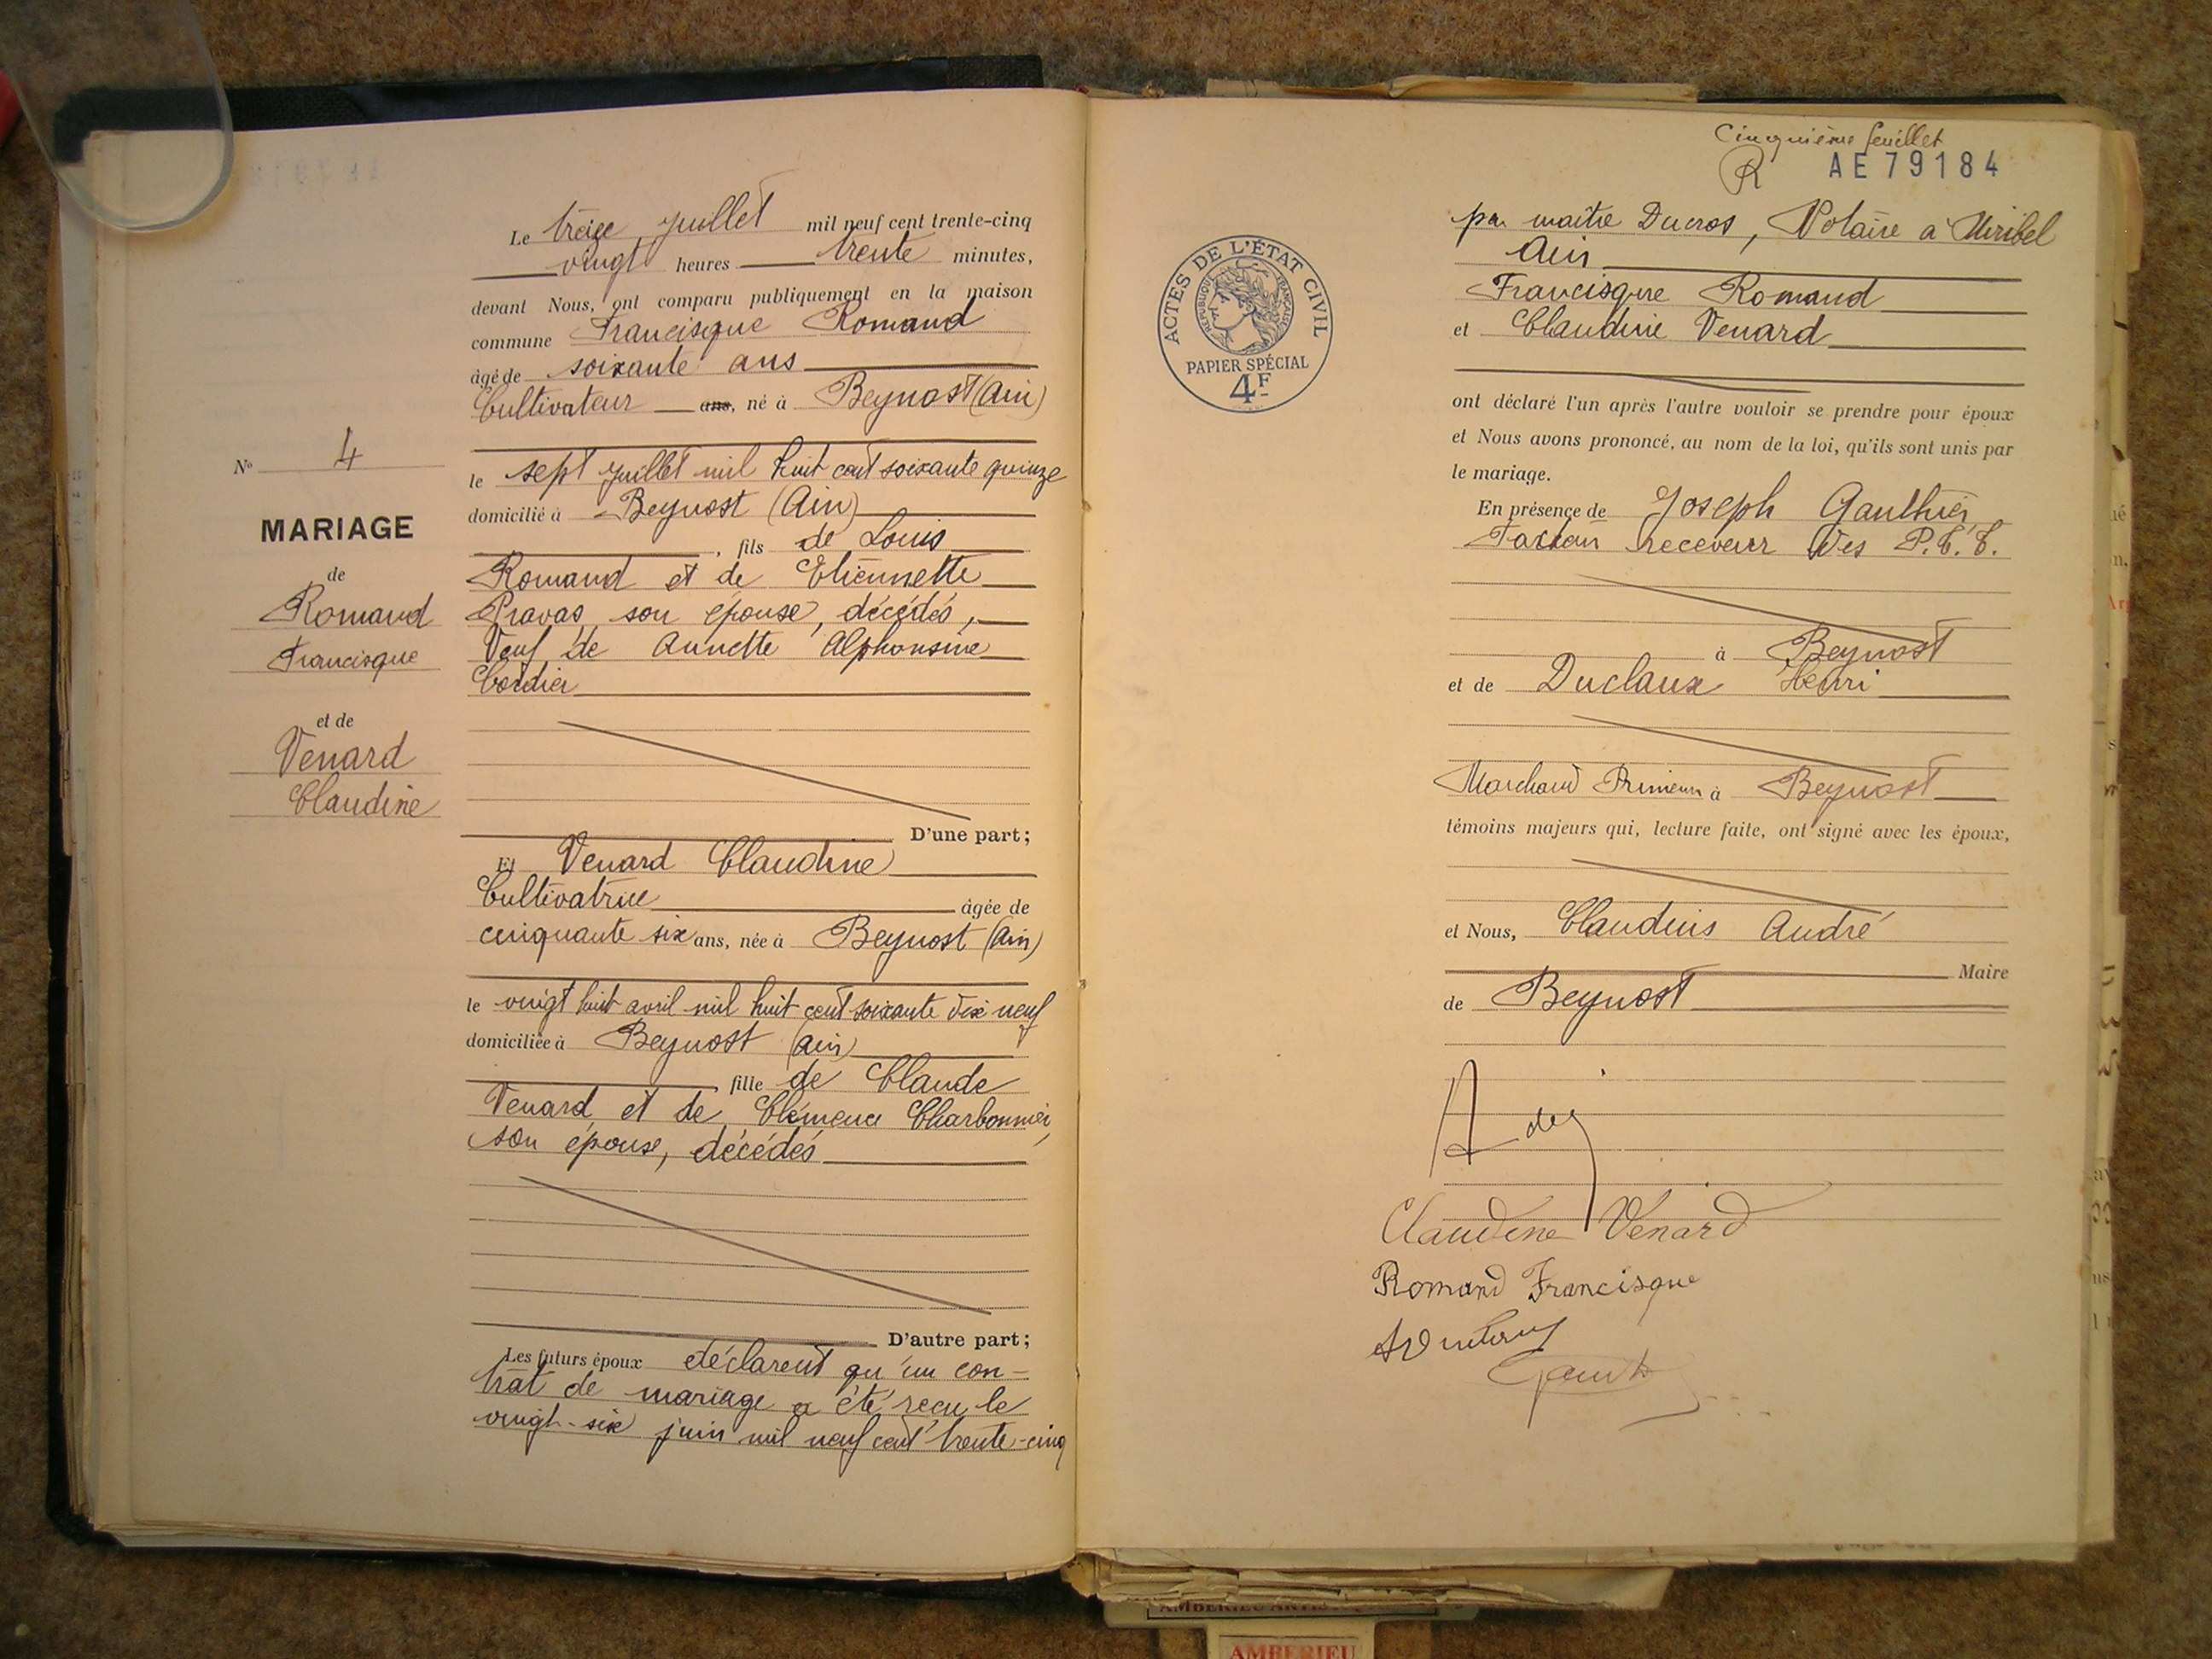 Le treize juillet mil neuf cent trente-cinq
vingt heures trente minutes,
devant Nous, ont comparu publiquement en la maison
commune Francisque Romand
âgé de soixante ans
Cultivateur ans, né à Beynost (Ain)
le sept juillet mil huit cent soixante quinze
domicilié à Beynost (Ain)
, fils de Louis
Romand et de Etiennette
Pravas, son épouse, décédés,
Veuf de Annette Alphonsine
Cordier
N° 4
MARIAGE
de
Romand
Francisque
et de
Venard
Claudine
D'une part;
Et Venard Claudine
Cultivatrice âgée de
cinquante six ans, née à Beynost (Ain)
le vingt huit avril mil huit cent soixante dix neuf
domiciliée à Beynost (Ain)
fille de Claude
Venard et de Clémence Charbonnier,
son épouse, décédés
D'autre part;
Les futurs époux déclarent qu'un con-
trat de mariage a été reçu le
vingt-six juin mil neuf cent trente-cinq
Cinquième feuillet
R AE79184
ACTES DE L'ÉTAT CIVIL
RÉPUBLIQUE FRANÇAISE
PAPIER SPÉCIAL
4F
par maître Ducros, Notaire à Miribel
Ain
Francisque Romand
et Claudine Venard
ont déclaré l'un après l'autre vouloir se prendre pour époux
et Nous avons prononcé, au nom de la loi, qu'ils sont unis par
le mariage.
En présence de Joseph Gauthier
Facteur receveur des P.T.T.
à Beynost
et de Duclaux Henri
Marchand Primeurs à Beynost
témoins majeurs qui, lecture faite, ont signé avec les époux,
et Nous, Claudius André
Maire
de Beynost
Claudine Venard
Romand Francisque
AMBERIEU